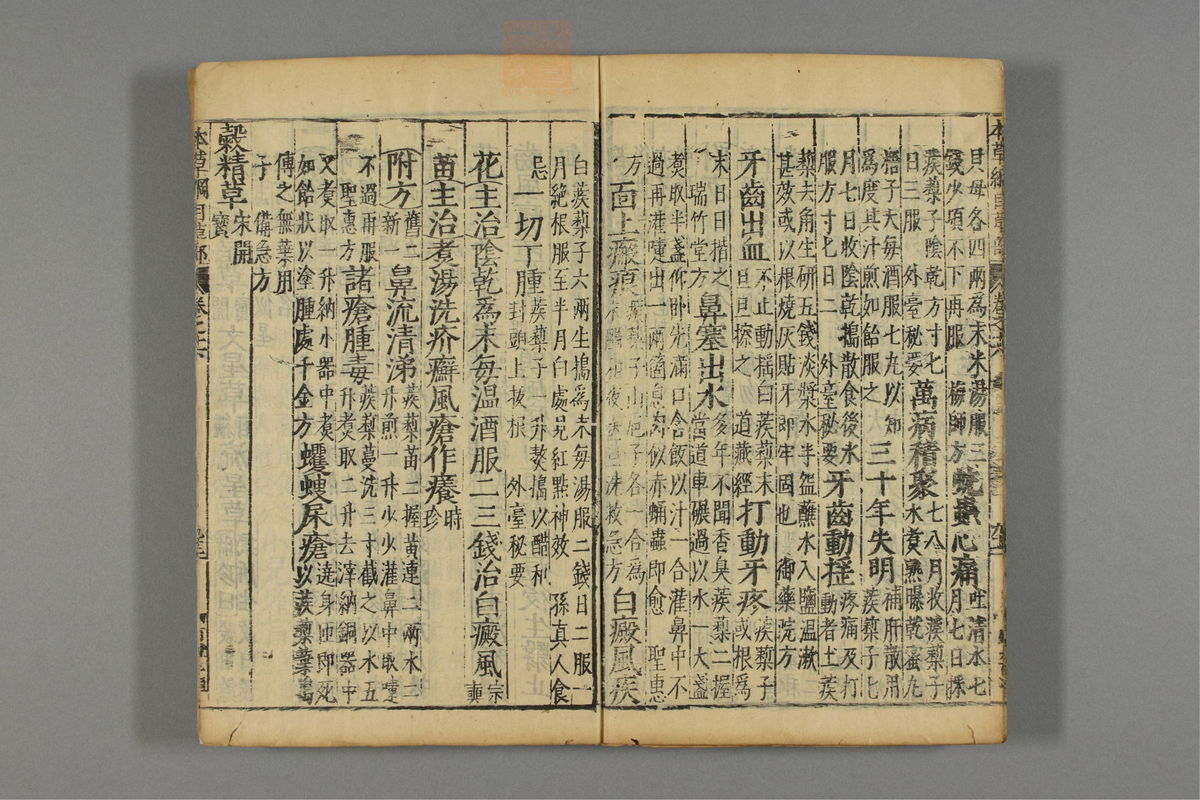 貝母各四兩為末米湯服三
錢少頃不下再服 梅師方
蚘蟲心痛
吐清水七
月七日採
蒺藜子陰乾方寸七
日三服 外臺秘要
萬病積聚
七八月收蒺藜子
水煑熟曝乾蜜九
梧子大每酒服七九以知
為度其汁煎如飴服之
三十年失明
補肝散用
蒺藜子七
月七日收陰乾搗散食後水
服方寸七日二 外臺秘要
牙齒動搖
疼痛及打
動者土蒺
藜去角生研五錢淡漿水半盌蘸水入鹽溫漱
甚效或以根燒灰貼牙即牢固也 御藥院方
牙齒出血
不止動搖白蒺藜末
旦旦擦之 道藏經
打動牙疼
蒺藜子
或根為
末日日揩之
瑞竹堂方
鼻塞出水
多年不聞香臭蒺藜二握
當道車碾過以水一大盞
煑取半盞仰臥先滿口含飯以汁一合灌鼻中不
過再灌嚏出一兩箇息肉似赤蛹蟲即愈 聖惠
方
面上瘢痕
蒺藜子山梔子各一合為
末醋和夜塗旦洗救急方
白癜風疾
白蒺藜子六兩生搗為末每湯服二錢日二服一
月絶根服至半月白處見紅點神效 孫真人食
忌
一切丁腫
蒺藜子一升熬搗以醋和
封頭上拔根 外臺秘要
花主治陰乾為末每温酒服二三錢治白癜風
宗
奭
苗主治煑湯洗疥癬風瘡作癢
時
珍
附方
舊二
新一
鼻流清涕
蒺藜苗二握黃連二兩水二
升煎一升少少灌鼻中取嚏
不過再服
聖惠方
諸瘡腫毒
蒺藜蔓洗三寸截之以水五
升煑取二升去滓納銅器中
又煑取一升納小器中煑
如飴狀以塗腫處千金方
蠼螋尿瘡
遶身匝即死
以蒺藜葉搗
傅之無葉用
子 備急方
穀精草
宋開
寶
本草綱目草部
卷之十六